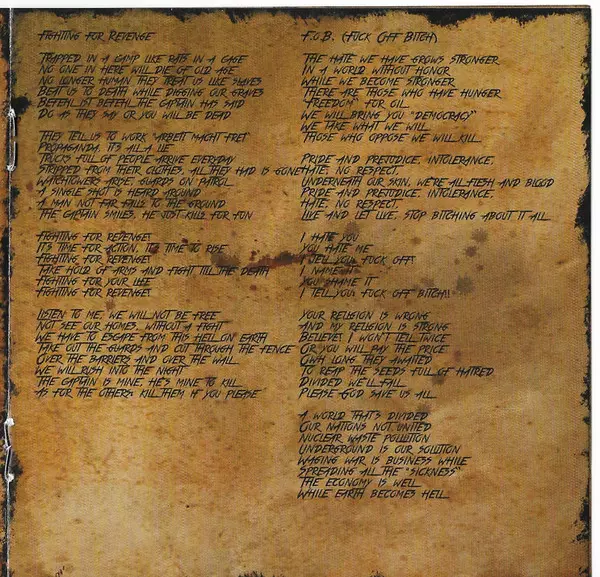 FIGHTING FOR REVENGE
TRAPPED IN A CAMP LIKE RATS IN A CAGE
NO ONE IN HERE WILL DIE OF OLD AGE
NO LONGER HUMAN THEY TREAT US LIKE SLAVES
BEAT US TO DEATH WHILE DIGGING OUR GRAVES
BEFEHL IST BEFEHL, THE CAPTAIN HAS SAID
DO AS THEY SAY OR YOU WILL BE DEAD
THEY TELL US TO WORK "ARBEIT MACHT FREI"
PROPAGANDA, IT'S ALL A LIE
TRUCKS FULL OF PEOPLE ARRIVE EVERYDAY
STRIPPED FROM THEIR CLOTHES, ALL THEY HAD IS GONE
WATCHTOWERS ARISE, GUARDS ON PATROL
A SINGLE SHOT IS HEARD AROUND
A MAN NOT FAR FALLS TO THE GROUND
THE CAPTAIN SMILES, HE JUST KILLS FOR FUN
FIGHTING FOR REVENGE
IT'S TIME FOR ACTION, IT'S TIME TO RISE
FIGHTING FOR REVENGE
TAKE HOLD OF ARMS AND FIGHT TILL THE DEATH
FIGHTING FOR YOUR LIFE
FIGHTING FOR REVENGE
LISTEN TO ME, WE WILL NOT BE FREE
NOT SEE OUR HOMES, WITHOUT A FIGHT
WE HAVE TO ESCAPE FROM THIS HELL ON EARTH
TAKE OUT THE GUARDS AND CUT THROUGH THE FENCE
OVER THE BARRIERS AND OVER THE WALL
WE WILL RUSH INTO THE NIGHT
THE CAPTAIN IS MINE, HE'S MINE TO KILL
AS FOR THE OTHERS, KILL THEM IF YOU PLEASE
F.O.B. (FUCK OFF BITCH)
THE HATE WE HAVE GROWS STRONGER
IN A WORLD WITHOUT HONOR
WHILE WE BECOME STRONGER
THERE ARE THOSE WHO HAVE HUNGER
"FREEDOM" FOR OIL
WE WILL BRING YOU "DEMOCRACY"
WE TAKE WHAT WE WILL
THOSE WHO OPPOSE WE WILL KILL
PRIDE AND PREJUDICE, INTOLERANCE,
HATE, NO RESPECT,
UNDERNEATH OUR SKIN, WE'RE ALL FLESH AND BLOOD
PRIDE AND PREJUDICE, INTOLERANCE,
HATE, NO RESPECT,
LIVE AND LET LIVE, STOP BITCHING ABOUT IT ALL
I HATE YOU
YOU HATE ME
I TELL YOU, FUCK OFF!
I NAME IT
YOU SHAME IT
I TELL YOU, FUCK OFF BITCH!!
YOUR RELIGION IS WRONG
AND MY RELIGION IS STRONG
BELIEVE! I WON'T TELL TWICE
OR YOU WILL PAY THE PRICE
OWN LONG THEY AWAITED
TO REAP THE SEEDS FULL OF HATRED
DIVIDED WE'LL FALL
PLEASE GOD SAVE US ALL
A WORLD THAT'S DIVIDED
OUR NATIONS NOT UNITED
NUCLEAR WASTE POLLUTION
UNDERGROUND IS OUR SOLUTION
WAGING WAR IS BUSINESS WHILE
SPREADING ALL THE "SICKNESS"
THE ECONOMY IS WELL
WHILE EARTH BECOMES HELL